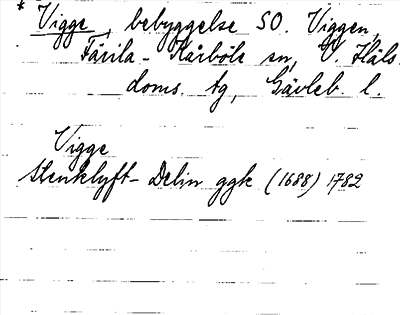 * Vigge, bebyggelse SO. Viggen,
Färila - Kårböle sn, V. Häls.
doms. tg, Gävleb. l.
Vigge
Stenklyft - Delin ggk (1688) 1782